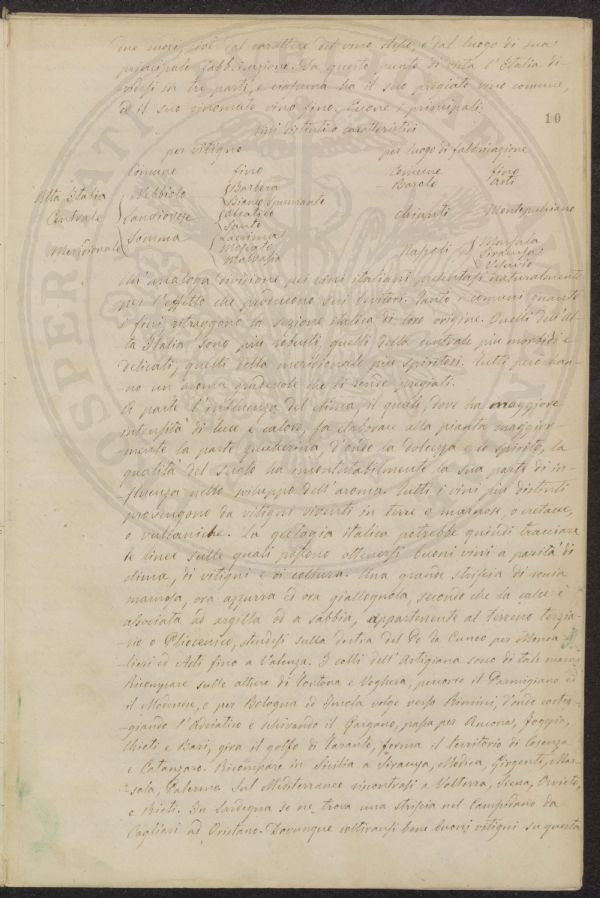 due modi, cioè dal carattere del vino stesso, e dal luogo di sua
principale fabbricazione. Da questo punto di vista l'Italia di-
videsi in tre parti, e ciascuna ha il suo pregiato vino comune,
ed il suo rinomato vino fino. Eccone i principali.
10
Vini distinti o caratteristici
per vitigno per luogo di fabbricazione
Comune fino Comune fino
Alta Italia Nebbiolo Barbera Barolo Asti
Bianco spumante
Centrale Sangiovese Aleatico Chianti Montepulciano
Santo
Meridionale Somma Lacrima Napoli Marsala
Moscato Siracusa
Malvasia Vesuvio
Un'analoga divisione pei vini italiani presentasi naturalmente
per l'effetto che producono sui bevitori. Tanto i comuni quanto
i fini, ritraggono la sezione italica di loro origine. Quelli dell'Al-
ta Italia sono più robusti, quelli della centrale più morbidi e
delicati, quelli della meridionale più spiritosi. Tutti però han-
no un aroma gradevole che li rende pregiati.
A parte l'influenza del clima, il quale, dove ha maggiore
intensità di luce e calore, fa elaborare alla pianta maggior-
mente la parte zuccherina d'onde la dolcezza e lo spirito, la
qualità del suolo ha incontestabilmente la sua parte di in-
fluenza nello sviluppo dell'aroma. Tutti i vini più distinti
provengono da vitigni viventi in terre o marnose, o cretacee,
o vulcaniche. La geologia italica potrebbe quindi tracciare
le linee sulle quali possono ottenersi buoni vini a parità di
clima, di vitigni e di coltura. Una grande striscia di roccia
marnosa, ora azzurra ed ora giallognola, secondo che la calce è
associata ad argilla od a sabbia, appartenente al terreno terzia-
rio o Pliocenico, stendesi sulla destra del Po da Cuneo per Monca-
lieri ed Asti fino a Valenza. I colli dell'Astigiana sono di tale marna
Ricompare sulle alture di Tortona e Voghera, percorre il Parmigiano ed
il Modenese, e per Bologna ed Imola volge verso Rimini, d'onde costeg-
giando l'Adriatico e schivando il Gargano, passa per Ancona, Foggia,
Chieti e Bari, gira il golfo di Taranto, forma il territorio di Cosenza
e Catanzaro. Ricompare in Sicilia a Siracusa, Modica, Girgenti, Mar-
sala, Palermo. Sul Mediterraneo riscontrasi a Volterra, Siena, Orvieto,
e Rieti. In Sardegna se ne trova una striscia nel Campidano da
Cagliari ad Oristano. Dovunque coltivansi bene buoni vitigni su questa